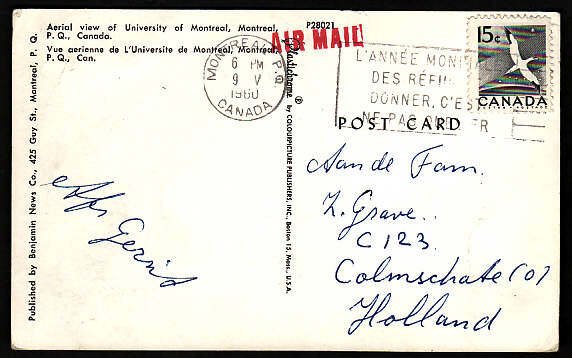 Aerial view of University of Montreal, Montreal,
P. Q., Canada.
Vue aerienne de L'Universite de Montreal, Montreal,
P. Q., Can.
P28021
AIR MAIL
MONTREAL P.Q.
6 PM
9 V
1960
CANADA
L'ANNÉE
DES
DONNER, C'ES
NE PAS
15c
CANADA
POST CARD
Plastichrome ®
by COLOURPICTURE PUBLISHERS, INC., Boston 15, Mass., U.S.A.
Published by Benjamin News Co., 425 Guy St., Montreal, P. Q.
Gerrit
Aan de Fam.
Z. Grave..
C 123.
Colmschate (O)
Holland